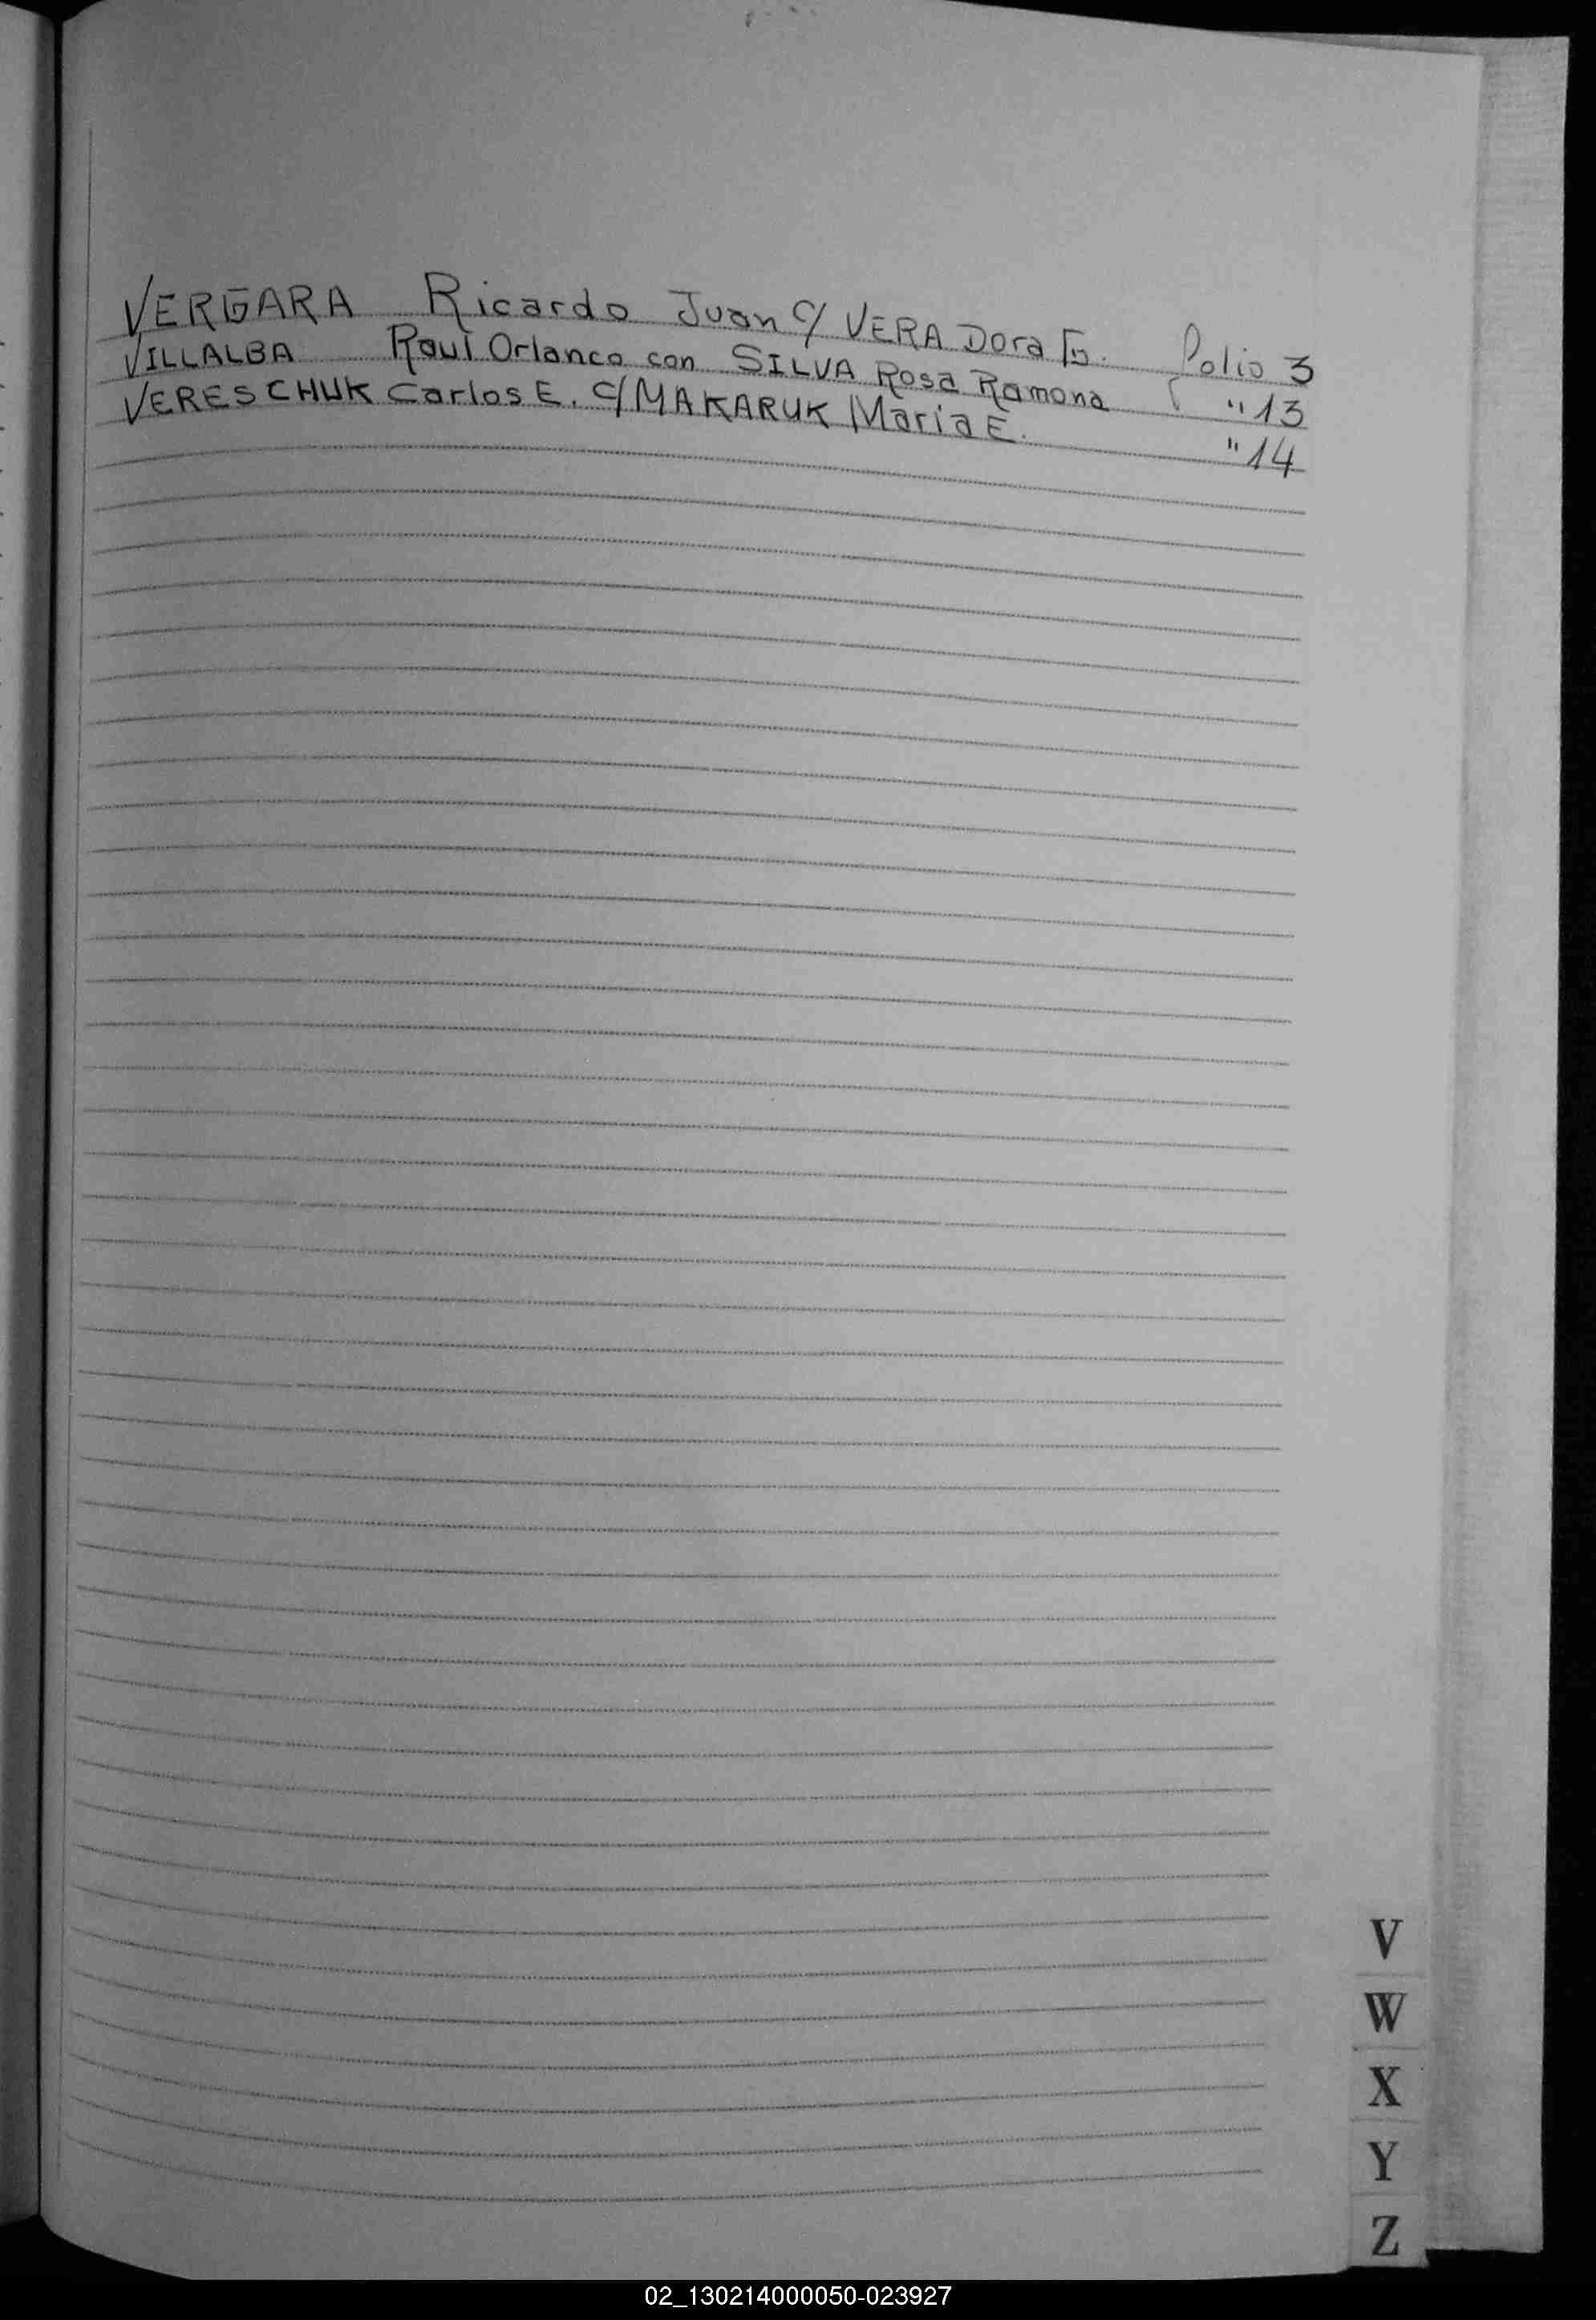 VERGARA Ricardo Juan C/ VERA Dora G. Folio 3
VILLALBA Raul Orlanco con SILVA Rosa Ramona " 13
VERESCHUK Carlos E. C/ MAKARUK Maria E. " 14
V
W
X
Y
Z
02_130214000050-023927